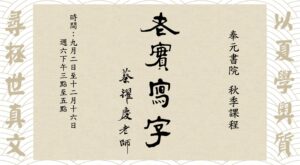 以夏學奧質
奉元書院 秋季課程
老實寫字
蔡耀慶老師
時間：九月二日至十二月十六日
週六下午三點至五點
尋拯世真文